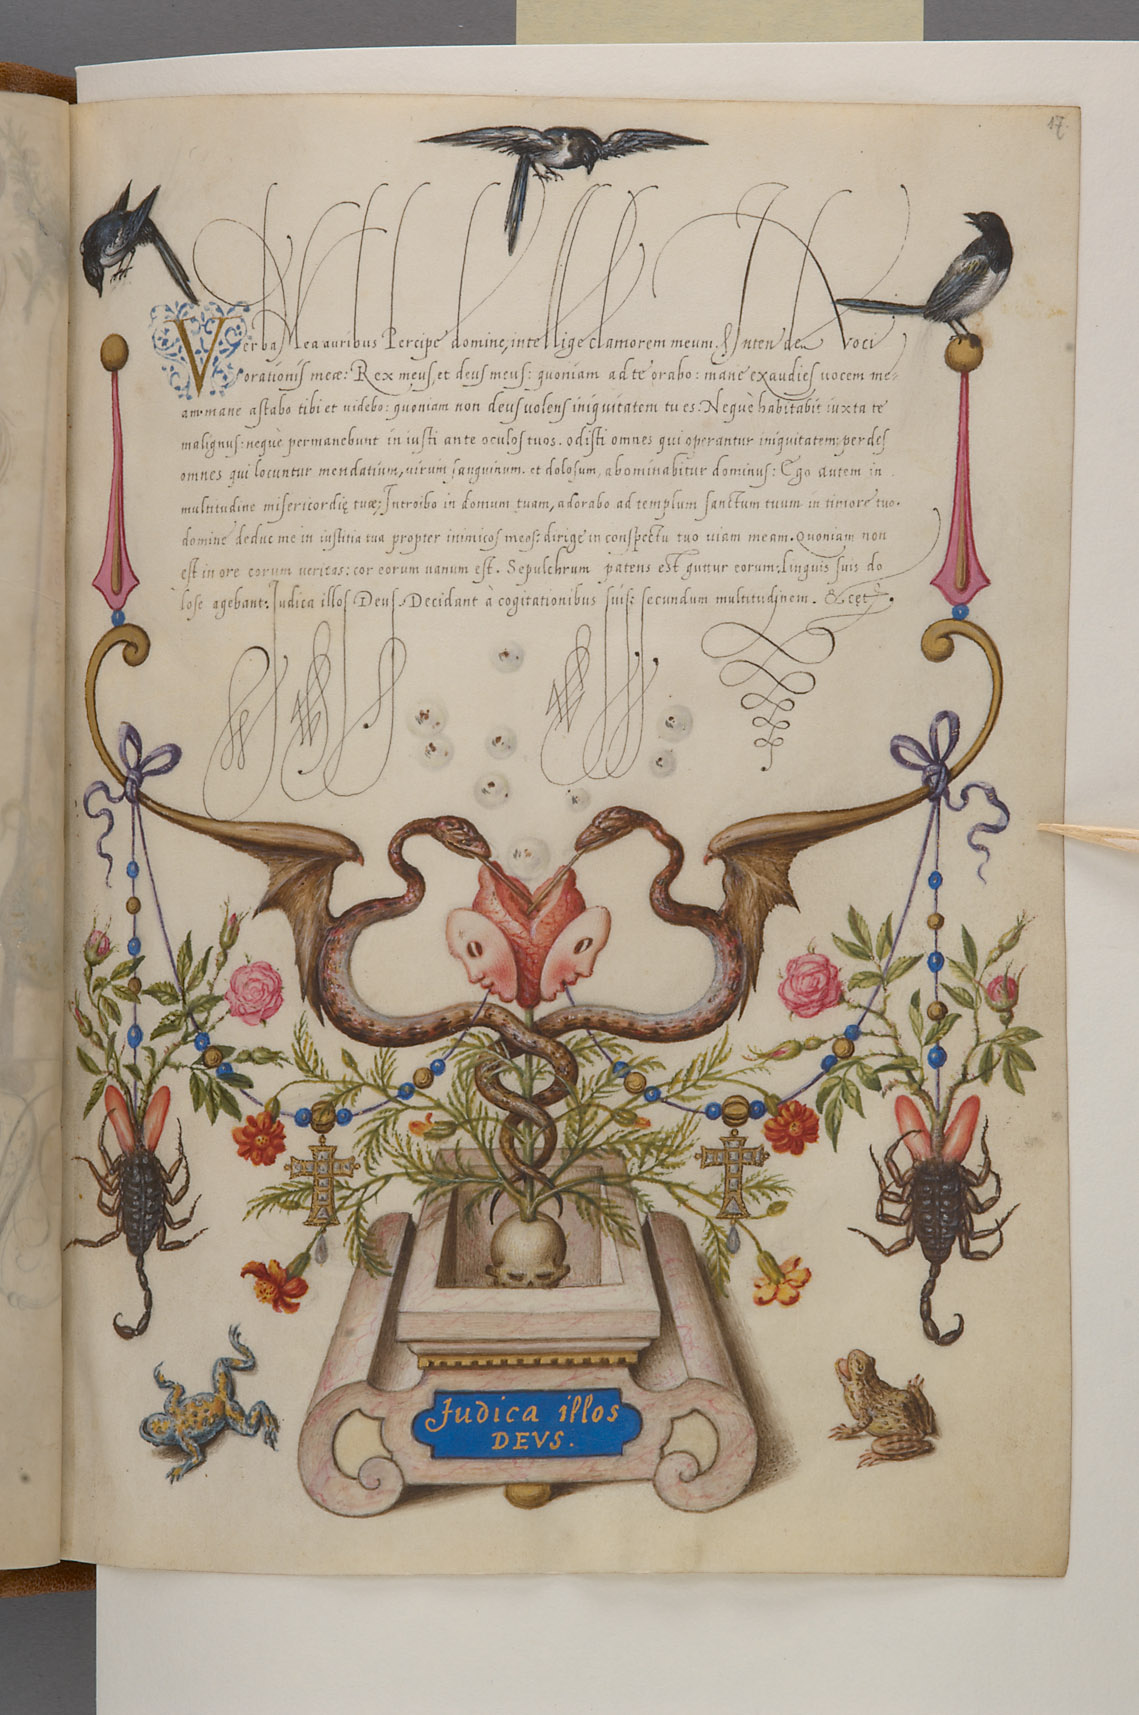 17
Verba Mea auribus Percipe domine, intellige clamorem meum. Intende Voci
orationis meæ: Rex meus, et deus meus: quoniam ad te orabo: mane exaudies vocem me-
am. mane astabo tibi et videbo: quoniam non deus volens iniquitatem tu es: Neque habitabit iuxta te
malignus: neque permanebunt iniusti ante oculos tuos. odisti omnes qui operantur iniquitatem: perdes
omnes qui locuntur mendatium, virum sanguinum. et dolosum, abominabitur dominus: Ego autem in
multitudine misericordię tuæ; Introibo in domum tuam, adorabo ad templum sanctum tuum in timore tuo.
domine deduc me in iustitia tua propter inimicos meos: dirige in conspectu tuo viam meam. Quoniam non
est in ore eorum veritas: cor eorum vanum est. Sepulchrum patens est guttur eorum: linguis suis do
lose agebant. Iudica illos Deus. Decidant à cogitationibus suis: secundum multitudinem. & cęt.
Judica illos
DEVS.